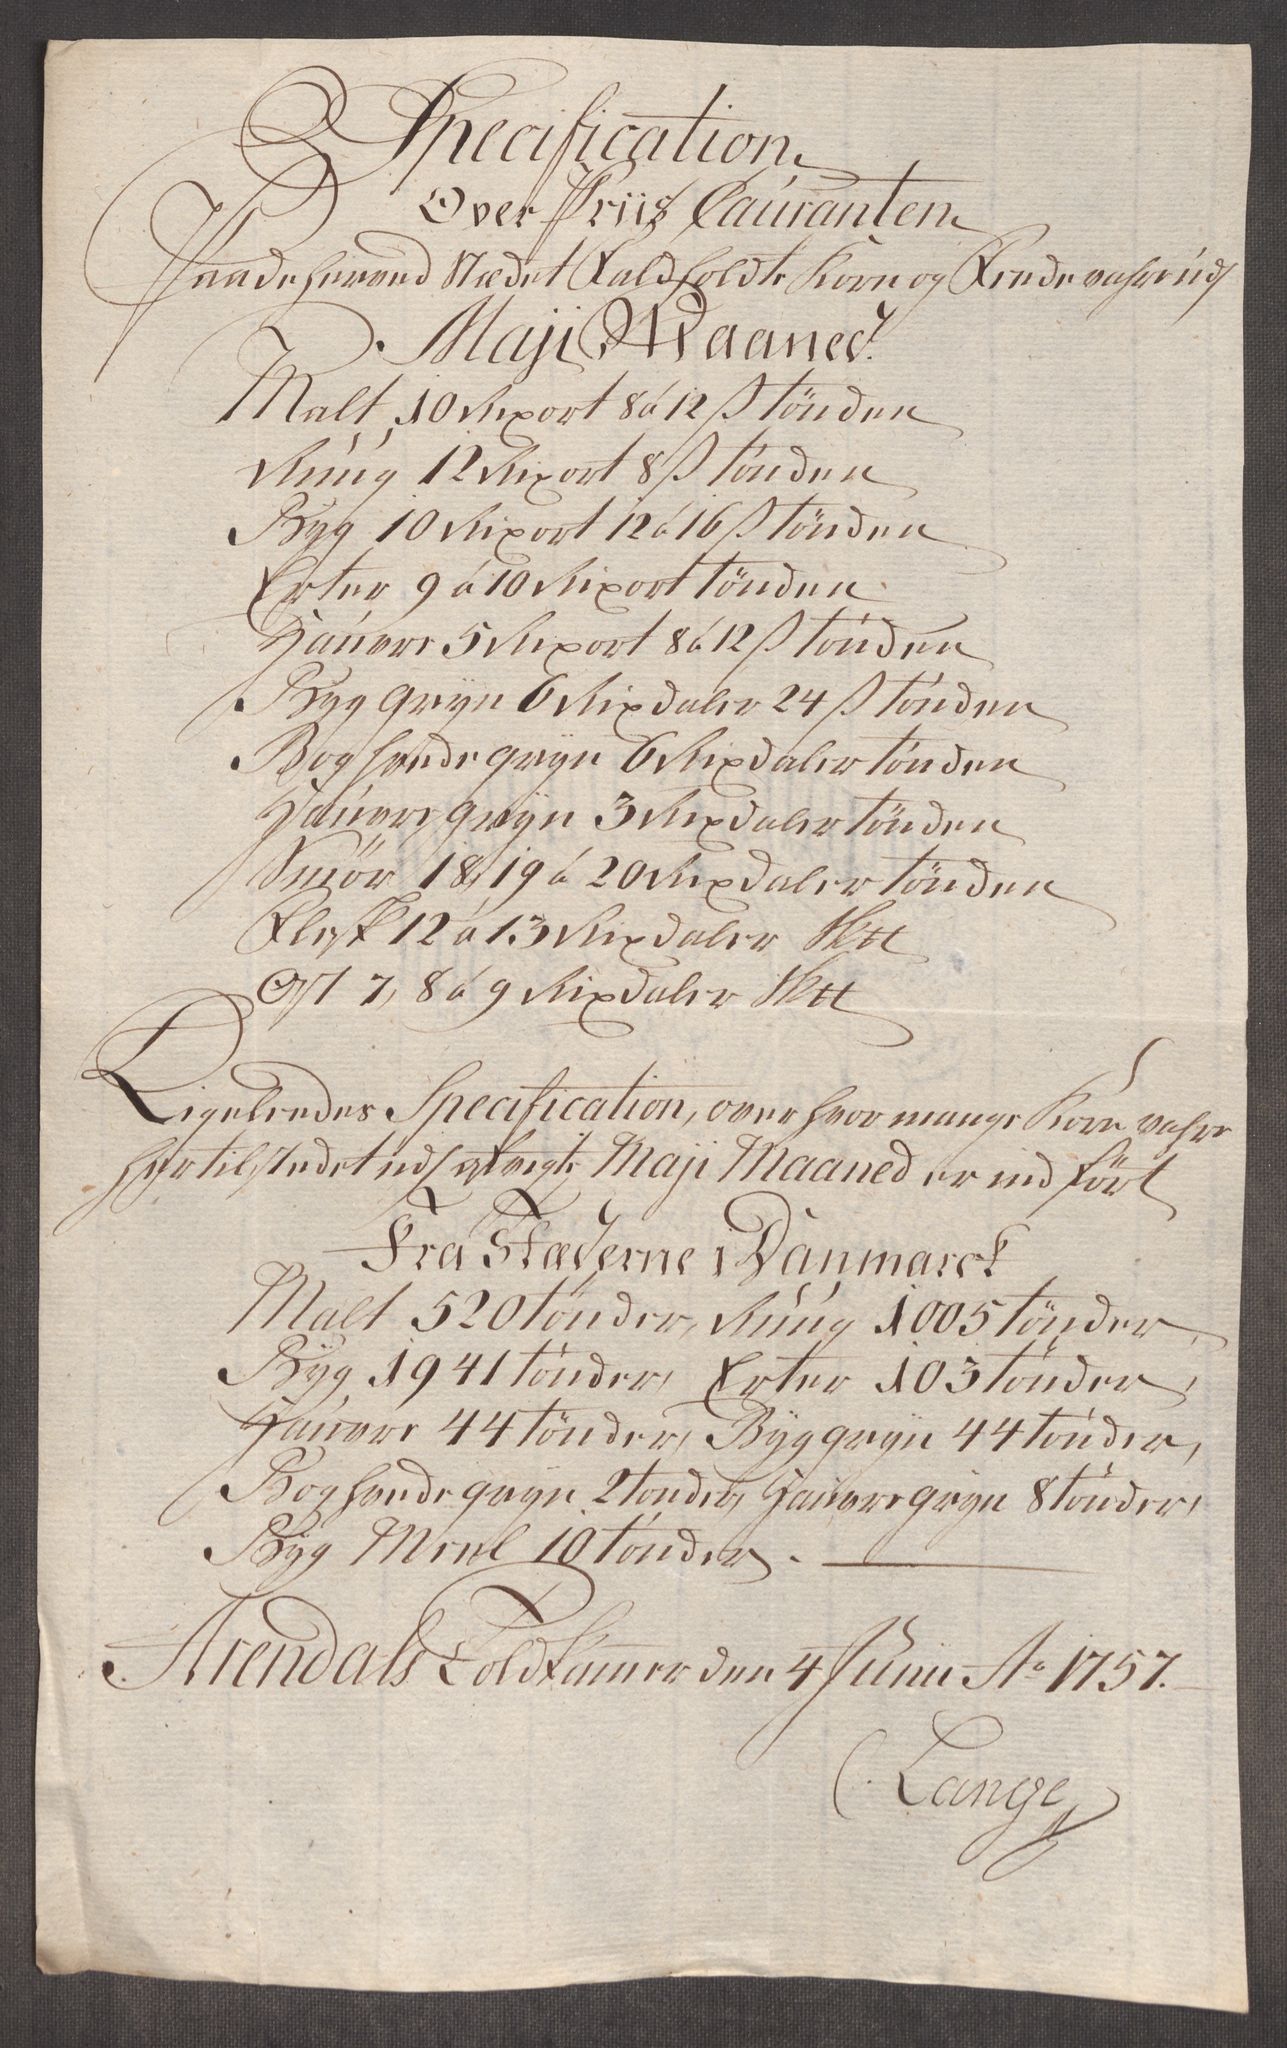 Specification
Over Priis Couranten
Paa de herved Stædet Faldholdte Korn og Fædevahre udj
Maji Maaned.
Malt 10 Rixort 8 á 12 s tönden
Rúúg 12 Rixort 8 s tönden
Byg 10 Rixort 12 á 16 s tönden
Erter 9 á 10 Rixort tönden
Haúvre 5 Rixort 8 á 12 s tönden
Byg gryn 6 Rixdaler 24 s tönden
Boghvede gryn 6 Rixdaler tönden
Haúvre gryn 3 Rixdaler tönden
Smör 18, 19 á 20 Rixdaler tönden
Flesk 12 á 13 Rixdaler
Ost 7, 8 á 9 Rixdaler
Ligeledes Specification, over hvor mange Korn vahre
her til Stedet udj Maji Maaned er ind fört
Fra Stæderne i Danmarck
Malt 520 tönder, Rúúg 1005 tönder,
Byg 1941 tönder, Erter 103 tönder,
Haúvre 44 tönder, Byg gryn 44 tönder,
Boghvede gryn 2 tönder, Haúvre gryn 8 tönder,
Byg Meel 10 tönder.
Arendals Toldkamer den 4 Junii Ao 1757.
C. Lange